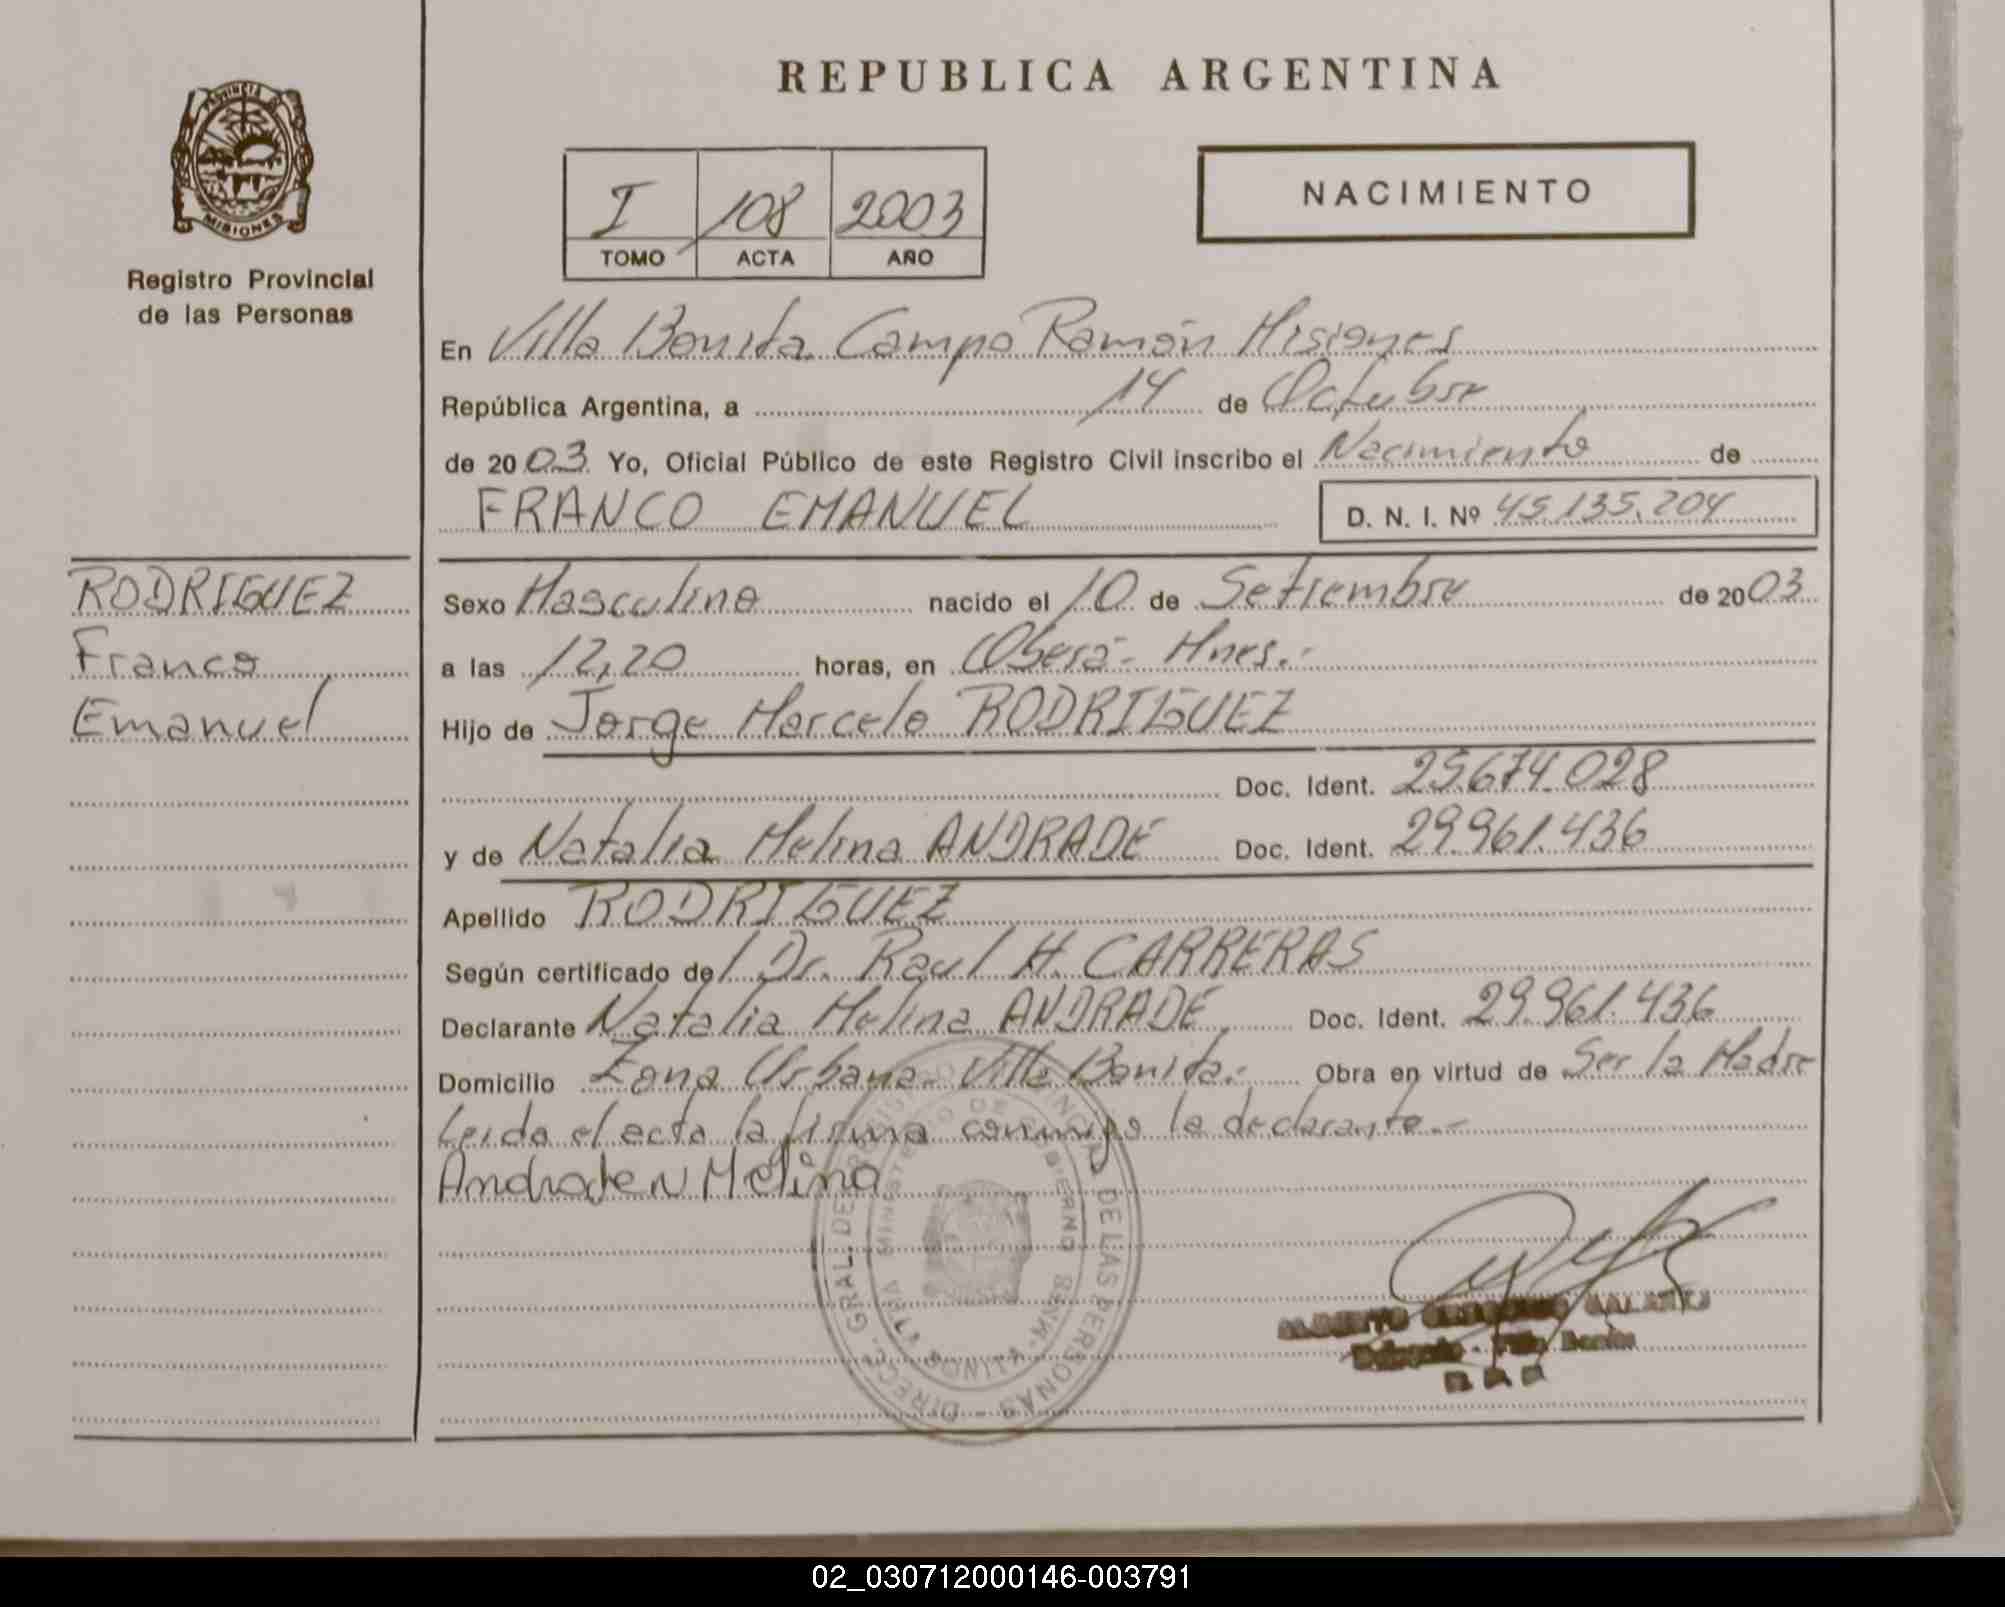 REPUBLICA ARGENTINA
PROVINCIA DE
MISIONES
Registro Provincial
de las Personas
I 108 2003
TOMO ACTA AÑO
NACIMIENTO
En Villa Bonita Campo Ramón Misiones
República Argentina, a 14 de Octubre
de 2003 Yo, Oficial Público de este Registro Civil inscribo el Nacimiento de
FRANCO EMANUEL D. N. I. Nº 45.135.204
RODRIGUEZ
Franco
Emanuel
Sexo Masculino nacido el 10 de Setiembre de 2003
a las 12,20 horas, en Oberá- Mnes.-
Hijo de Jorge Marcelo RODRIGUEZ
Doc. Ident. 25.674.028
y de Natalia Melina ANDRADE Doc. Ident. 29.961.436
Apellido RODRIGUEZ
Según certificado del Dr. Raul H. CARRERAS
Declarante Natalia Melina ANDRADE Doc. Ident. 29.961.436
Domicilio Zona Urbana Villa Bonita.- Obra en virtud de Ser la Madre
Leida el acta la firma conmigo la declarante.-
Andrade N Melina
DIRECC. GRAL. DE REGISTRO PROVINCIAL DE LAS PERSONAS
MINISTERIO DE GOBIERNO
VILLA BONITA - MNES
Delegado - Villa Bonita
02_030712000146-003791